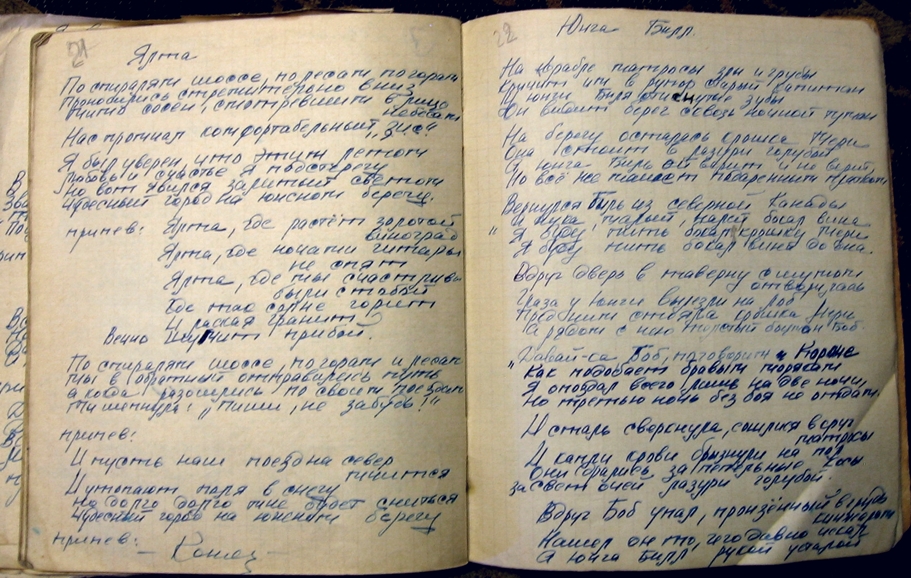 21
Ялта
По спиралям шоссе, по лесам, по горам
Проносились стремительно вниз
Мимо сосен, смотревших в лицо
небесам
Нас промчал комфортабельный „Зис"
Я был уверен, что этим летом
Любовь и счастье я подстерегу
Но вот явился залитый светом
Чудесный город на южном берегу.
припев: Ялта, где растёт золотой
виноград
Ялта, где ночами гитары
не спят
Ялта, где мы счастливы
были с тобой
Где так солнце горит
И лаская гранит
Вечно шумит прибой.
По спиралям шоссе, по горам и лесам
Мы в обратный отправились путь
а когда разошлись по своим поездам
Ты шепнула: „Пиши, не забудь!"
припев:
И пусть наш поезд на север
мчится
И утопают поля в снегу
Но долго долго мне будет сниться
Чудесный город на южном берегу
припев:
- Конец -
22
Юнга Билл.
На корабле матросы злы и грубы
Кричит им в рупор старый капитан
У юнги Билл стиснутые зубы
Он видит берег сквозь ночной туман
На берегу осталась крошка Мери
Она стоит в лазури голубой
А юнга Билл ей верит и не верит
Но всё же машет подаренным платком
Вернулся Билл из северной Канады
"Я буду пить бокал за крошку Мери
Я буду пить бокал вина до дна.
Вдруг дверь в таверну с шумом
отворилась
Глаза у юнги вылезли на лоб
Пред ним стояла крошка Мери
А рядом с нею толстый боцман Боб.
"Давай-ка Боб, поговорим о Мери
Как подобает бравым морякам
Я опоздал всего лишь на две ночи,
Но третью ночь без боя не отдам.
И сталь сверкнула, сошлися в круг
матросы
И капли крови брызнули на пол
Они дрались за пепельные косы
За свет очей лазури голубой.
Вдруг Боб упал, пронзённый в грудь
кинжалом
Нашёл он то, чего давно искал
А юнга Билл рукой усталой